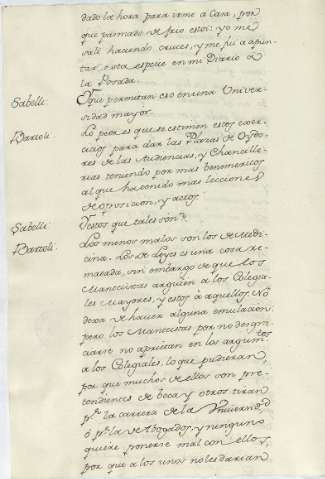 dado la hora para irme a Casa, por
que pasmado de frio estoi: yo me
salí haciendo cruces, y me fui a apun-
tar esta especie en mi Diario a
la Posada.
Sabelli. Y que permitan eso en una Univer-
sidad mayor.
Bartoli. Lo peor es que se estimen estos exer-
cicios para dar las Plazas de Oydo-
res de las Audiencias, y Chancille-
rias teniendo por mas benemerito
al que ha tenido mas lecciones
de oposicion, y actos.
Sabelli. Y estos que tales son?
Bartoli. Los menos malos son los de Medi-
cina. Los de Leyes es una cosa re-
matada, sin embargo de que los
Manteistas arguien a los Colegia-
les Mayores, y estos a aquellos. No
dexa de haver alguna emulacion,
pero los Manteistas por no desgra-
ciarse no aprietan en los argumtos
a los Colegiales, lo que pudieran,
por que muchos de ellos son pre-
tendientes de beca y otros tiran
pr. la carrera de la Universd.
ó pr. la de Abogados, y ninguno
quiere ponerse mal con ellos,
por que a los unos no les darian